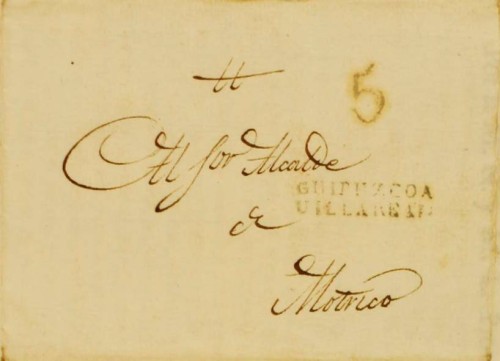 5
Al Sor Alcalde
GUIPUZCOA
VILLAREAL
de
Motrico